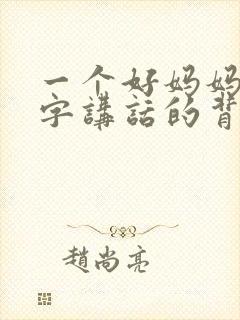 一个好妈妈
字講話的背
趙尚亮